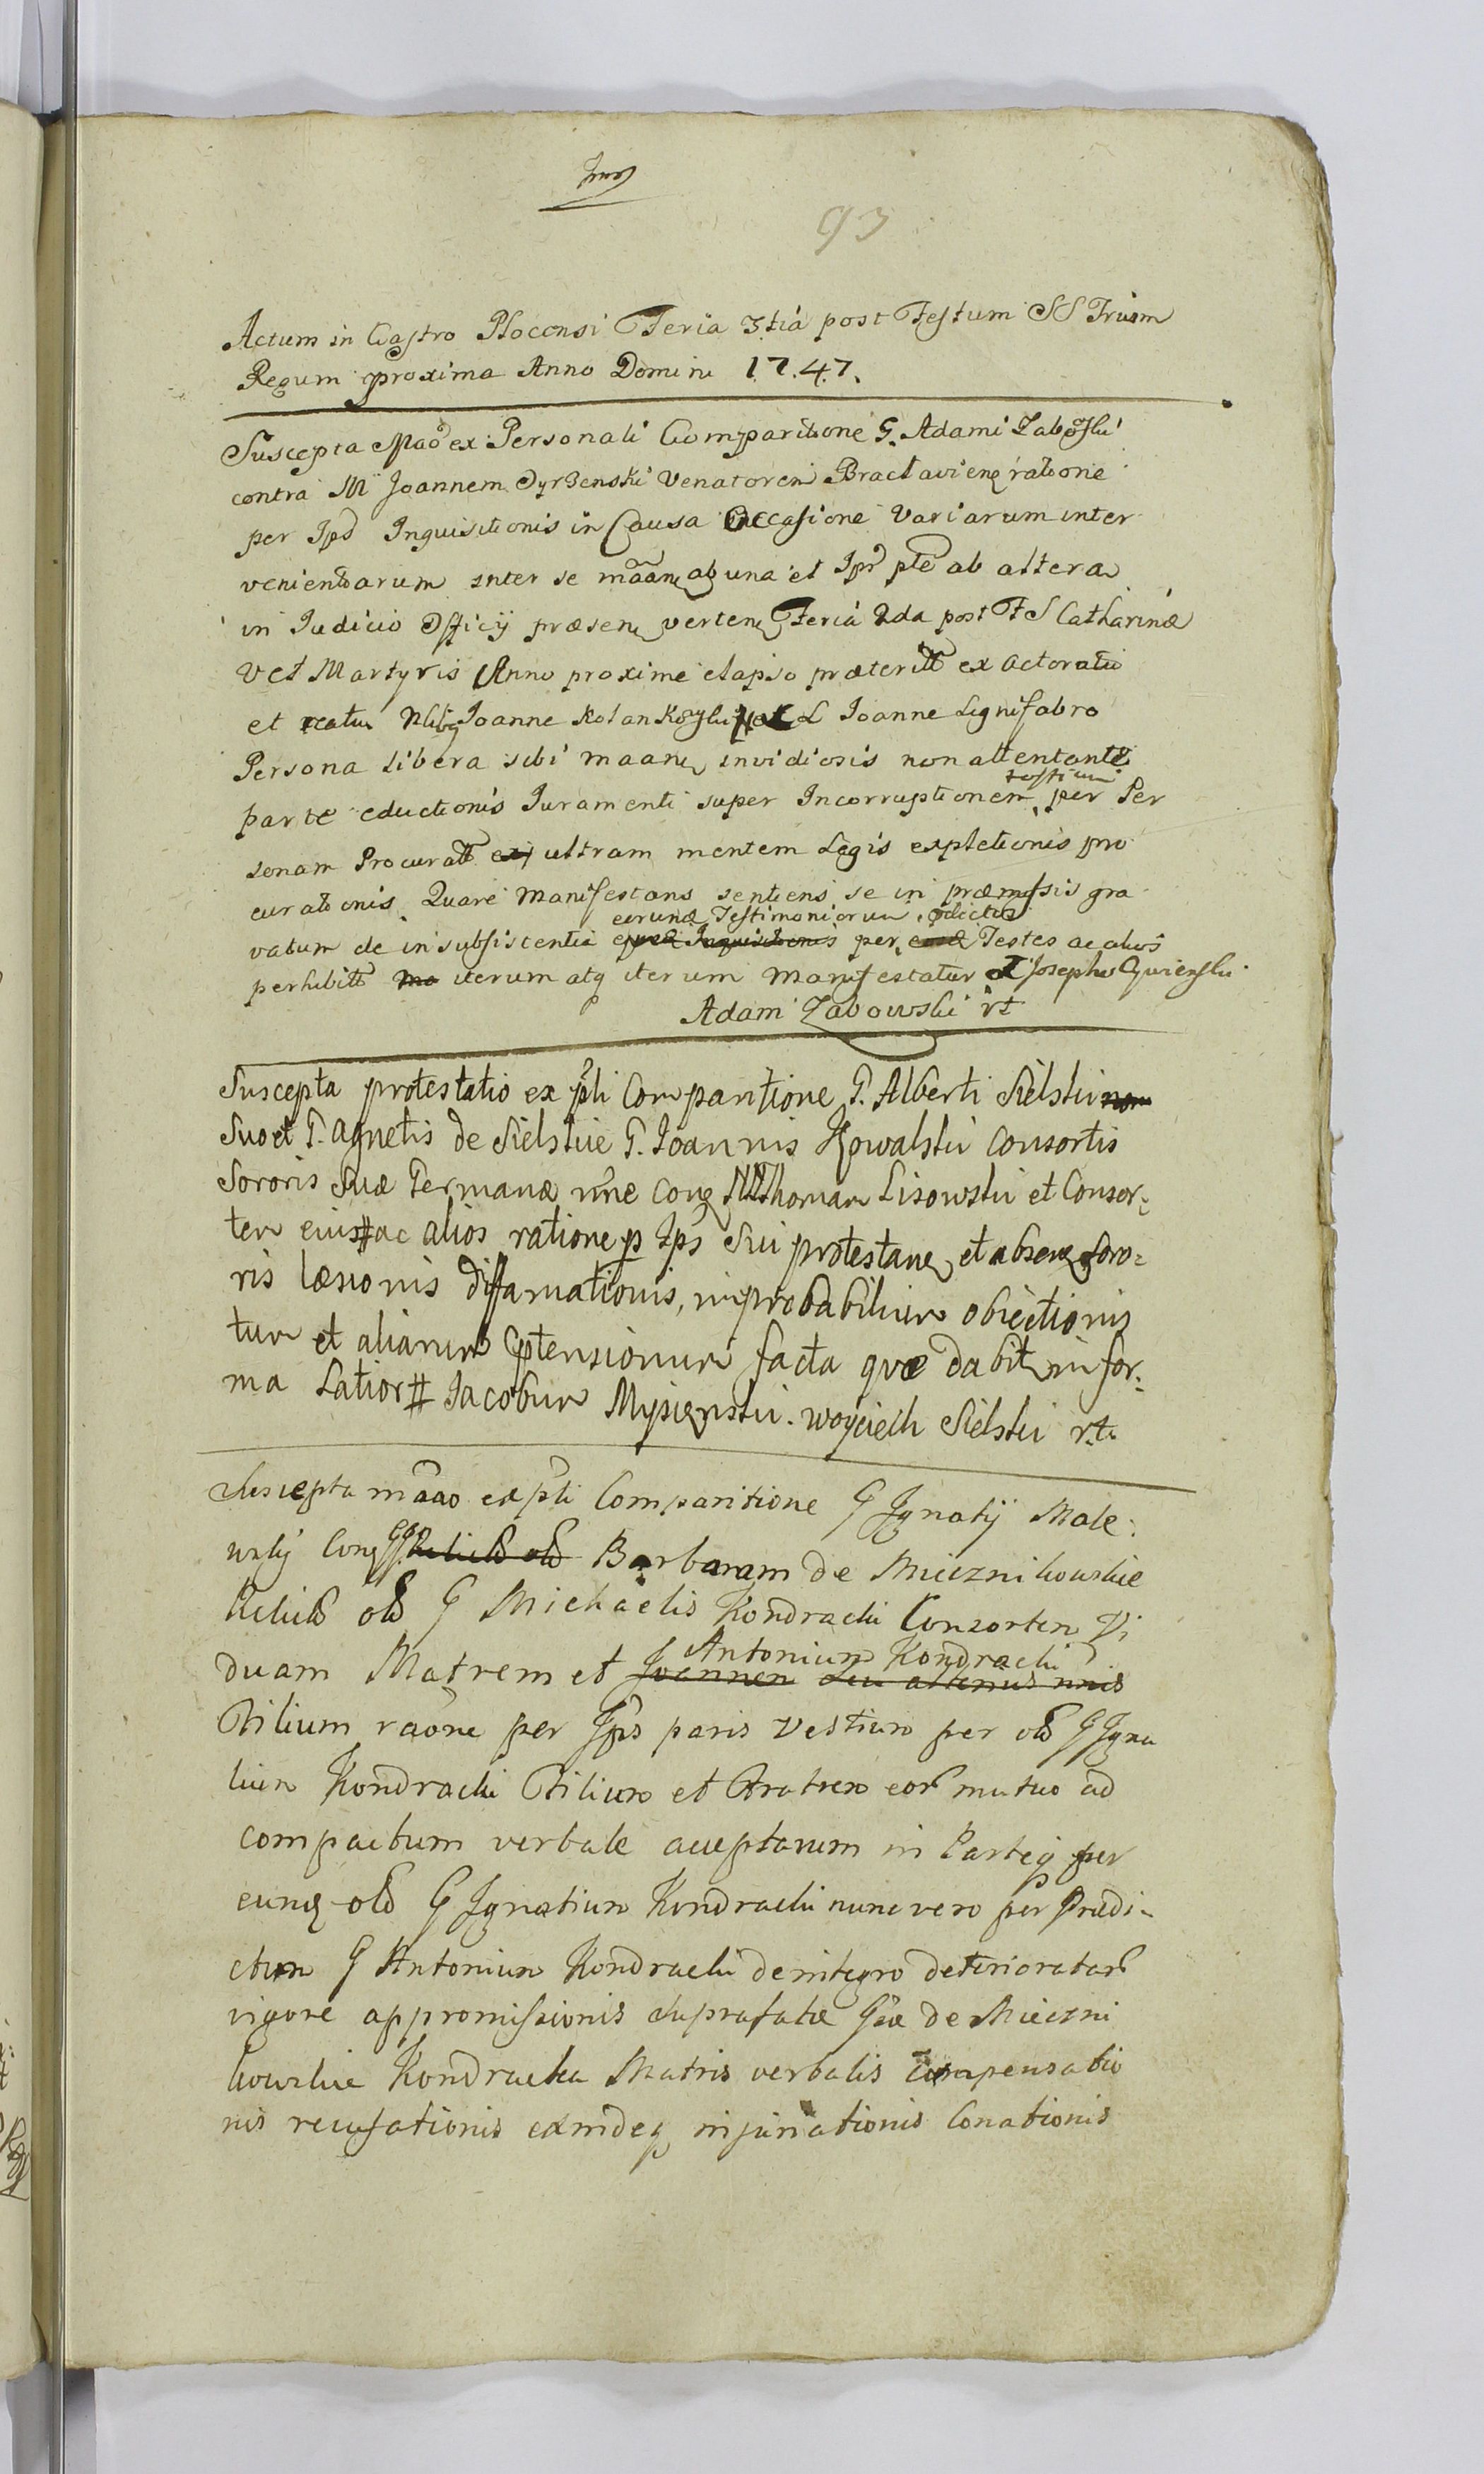 93
Actum in Castro Plocensi Feria 3tia post Festum SS Trium
Regum proxima Anno Domini 17.47.
Suscepta Mao ex Personali Comparitione G. Adami Zaboski
contra M Joannem Dyrzenski Venatorem Bractavien ratione
per Ips Inquisitionis in Causa Occasione Variarum inter
venientarum inter se maane ab una et Ipr pte ab altera
in Judicio Officij præsen verten Feria 2da post F S Catharinæ
V et Martyris Anno proxime elapso præteritt ex actoratu
et reatu Nlib Joanne L Joanne Lignifabro
Persona libera sibi maane invidiosis non attentante
parte eductionis Juramenti super Incorruptionem testium per Per
sonam Procuratt ultram mentem Legis expletionis pro
curationis Quare Manifestans sentiens se in præmissis gra
vatum de insubsistentia eorund Testimoniorum per pdictos Testes ac alios
perhibitt iterum atq iterum manifestatur Josephus
Adam Zabowski rt
Suscepta protestatio ex pli Comparitione G. Alberti Sielski
Suo et G. Agnetis de Sielskie G. Joannis Kowalski Consortis
Sororis Suæ Germanæ nne Cong Thoman Lisowski et Consor-
tem eius # ac alios ratione p Ips Sui protestane et absen Soro=
ris læsionis diffamationis, improbabilium obiectionis
tum et aliarum Cptensionum facta quæ dabit in for-
ma Latior # Jacobum Mysienski. Woyciech Sielski r.t.
Suscepta maao ex pli Comparitione G Ignatij Male
wskij Cong GG Relictd old Barbaram de Miecznikowskie
Relictd old G Michaelis Kondracki Consortem Vi
duam Matrem et Antonium Kondracki
Filium raone per Ips paris Vestium per old G Igna
tium Kondracki Filium et Fratrem eor mutuo ad
compactum verbale acceptarum in Parteq per
eund old G Ignatium Kondracki nunc vero per Prædi-
ctum G Antonium Kondracki de integro deterioratar
vigore appromissionis Suprafatæ Gsæ de Mieczni
kowskie Kondracka Matris verbalis compensatio
nis recusationis exindeq injuriationis Conationis